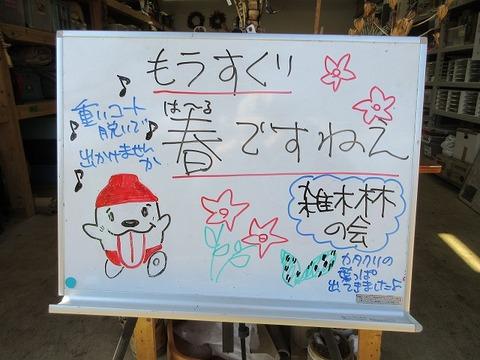 もうすぐ!!
は～る
春ですねえ
重いコート
脱いで
出かけません
か
雑木林
の会
カタクリの
葉っぱ
出てきましたよ